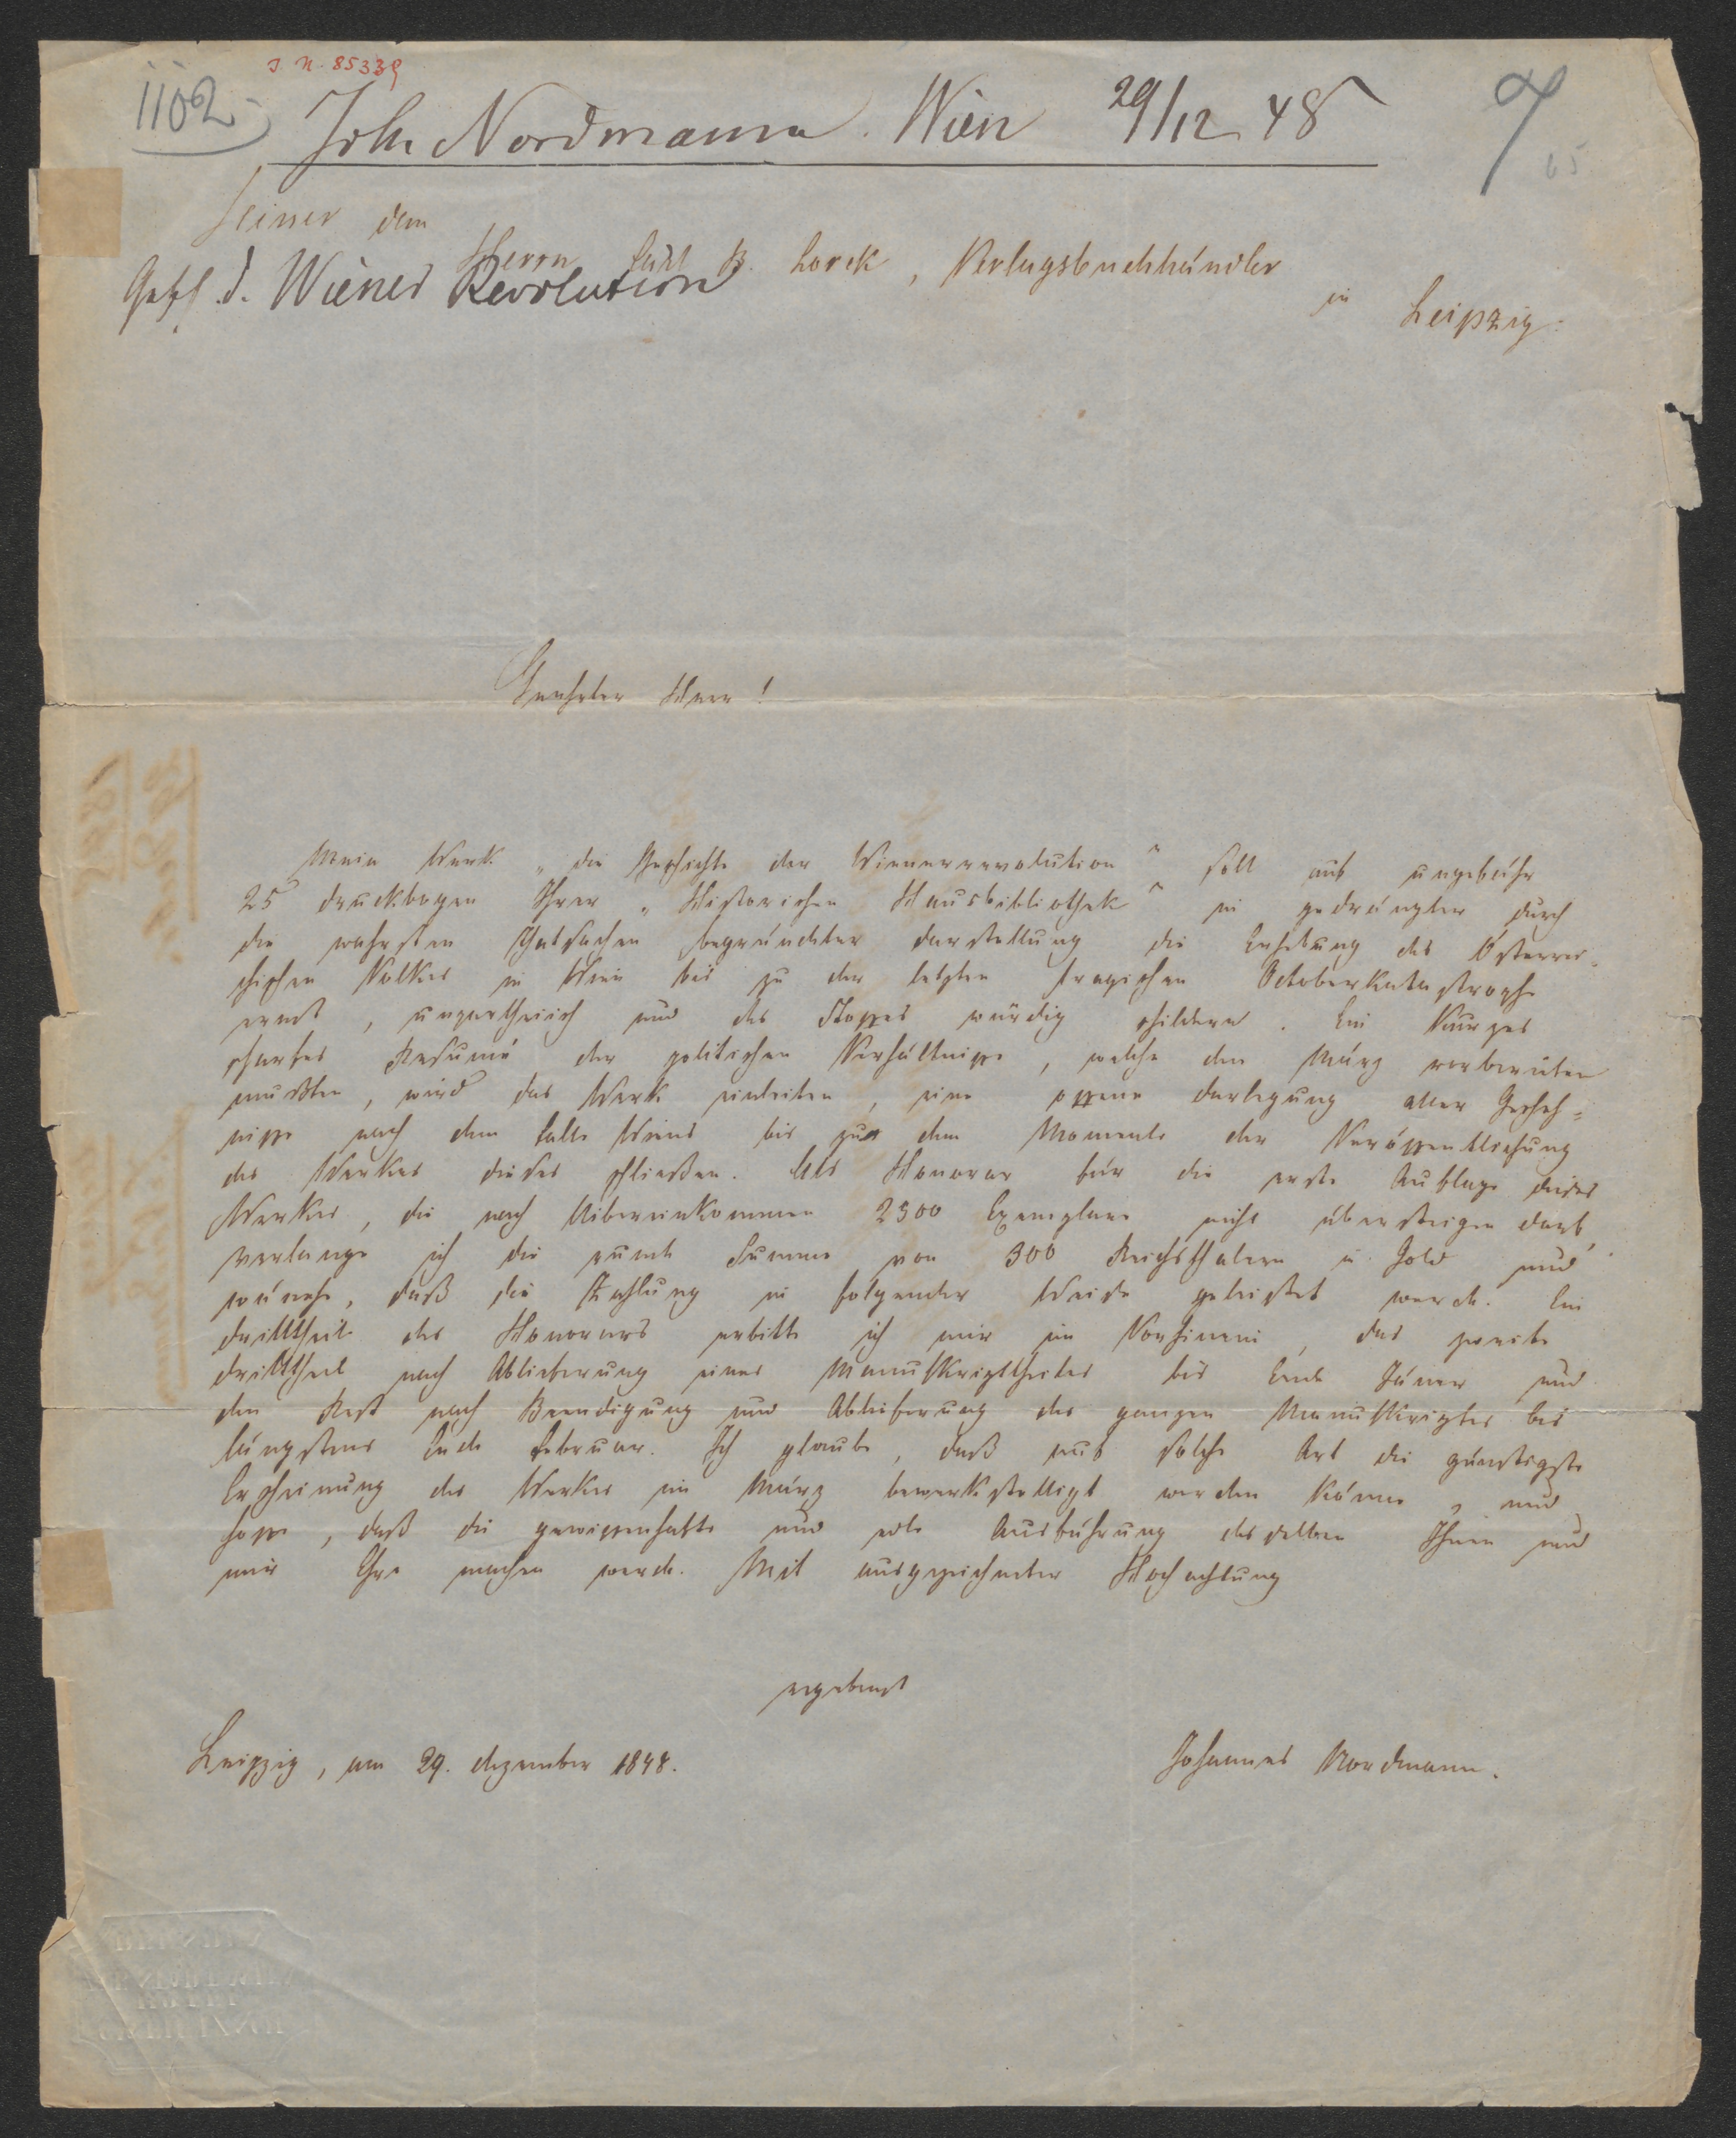 J. N. 85339
1102
Joh. Nordmann. Wien 29/12 48
65
dem
Herrn Carl B. Lorck, Verlagsbuchhändler
Gesch. d. Wiener Revolution
in Leipzig.
Geehrter Herr!
Mein Werk „die Geschichte der Wienerrevolution“ soll auf ungefähr
25 Druckbogen Ihrer „Historischen Hausbibliothek“ in gedrängter durch
die wahrsten Thatsachen begründeter Darstellung die Erhebung des Österrei-
chischen Volkes in Wien bis zu der letzten tragischen Octoberkatastrophe
ernst, unpartheiisch und des Stoffes würdig schildern. Ein kurzes
scharfes Resumé der politischen Verhältnisse, welche den März vorbereiten
mußten, wird das Werk einleiten, eine offene Darlegung aller Gescheh-
nisse nach dem Falle Wiens bis zu dem Momente der Veröffentlichung
des Werkes dieses schließen. Als Honorar für die erste Auflage dieses
Werkes, die nach Uibereinkommen 2500 Exemplare nicht übersteigen darf,
verlange ich die runde Summe von 300 Reichsthalern in Gold und
wünsche, daß die Zahlung in folgender Weise geleistet werde. Ein
Drittheil des Honorars erbitte ich mir im Vorhinein, das zweite
Drittheil nach Ablieferung eines Manuskripttheiles bis Ende Jäner und
den Rest nach Beendigung und Ablieferung des ganzen Manuskriptes bis
längstens Ende Februar. Ich glaube, daß auf solche Art die günstigste
Erscheinung des Werkes im März bewerkstelligt werden könne, und
hoffe, daß die gewissenhafte und edle Ausführung desselben Ihnen und
mir Ehre machen werde. Mit ausgezeichneter Hochachtung
ergebenst
Leipzig, am 29. Dezember 1848.
Johannes Nordmann.